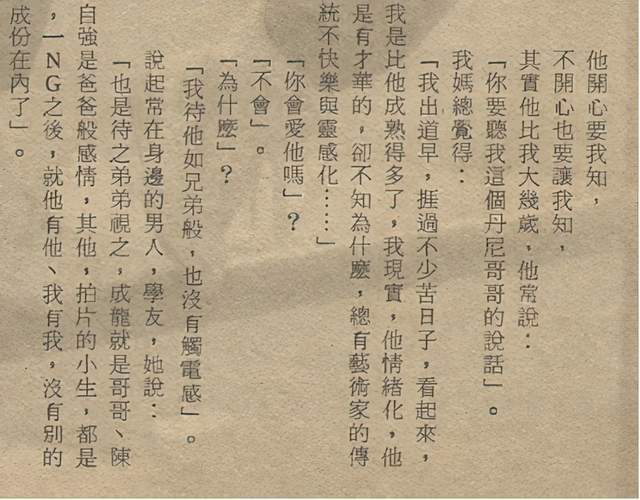 他開心要我知，
不開心也要讓我知，
其實他比我大幾歲，他常說：
「你要聽我這個丹尼哥哥的說話」。
我媽總覺得：
「我出道早，捱過不少苦日子，看起來，
我是比他成熟得多了，我現實，他情緒化，他
是有才華的，卻不知為什麼，總有藝術家的傳
統不快樂與靈感化……」
「你會愛他嗎」？
「不會」。
「為什麼」？
「我待他如兄弟般，也沒有觸電感」。
說起常在身邊的男人，學友，她說：
「也是待之弟弟視之，成龍就是哥哥、陳
自強是爸爸般感情，其他，拍片的小生，都是
，一NG之後，就他有他、我有我，沒有別的
成份在內了」。